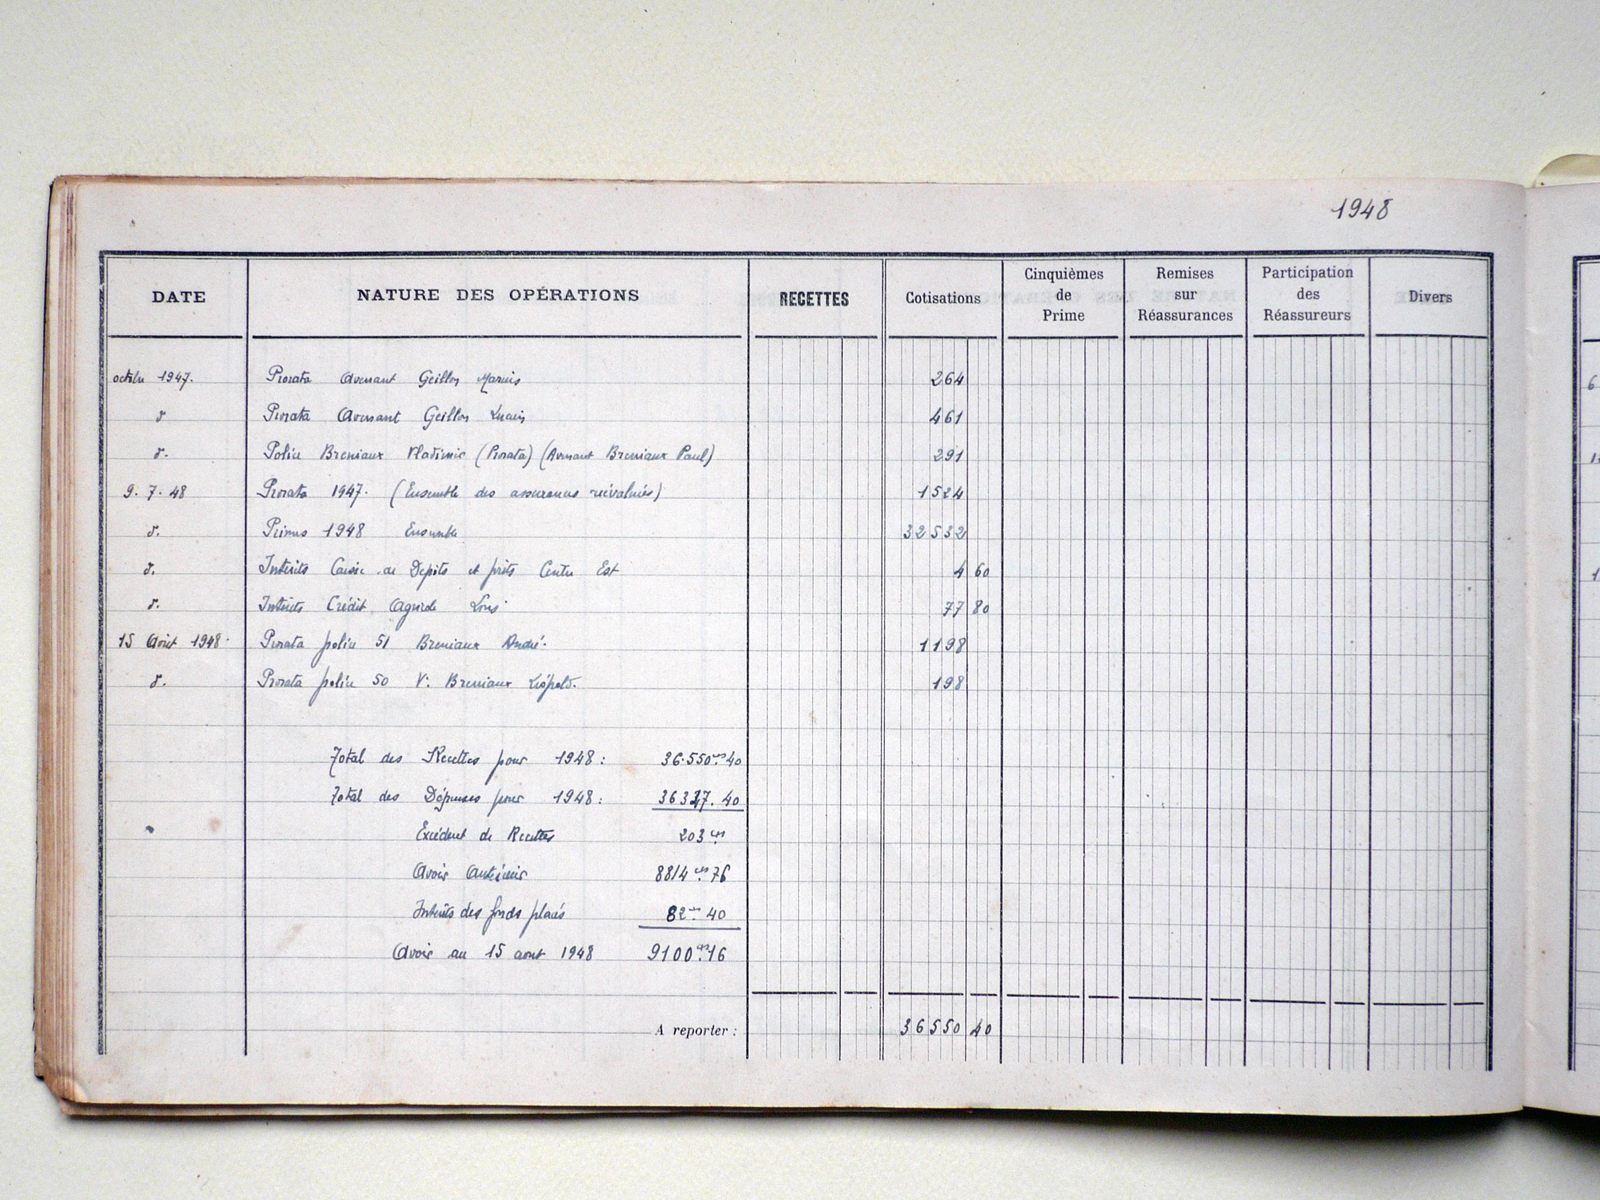 1948
DATE NATURE DES OPÉRATIONS RECETTES Cotisations Cinquièmes de Prime Remises sur Réassurances Participation des Réassureurs Divers
1947. Prorata Avenant Geillon Marius 264
d. Prorata Avenant Geillon 461
d. Police Breniaux Vladimir (Prorata) (Avenant Breniaux Paul) 291
9. 7. 48 Prorata 1947. (Ensemble des assurances réévaluées) 1524
d. Primes 1948 Ensemble 32532
d. Intérêts Caisse de Dépôts et prêts Centre Est 4 60
d. Intérêts Crédit Agricole 77 80
15 Août 1948. Prorata police 51 Breniaux André. 1198
d. Prorata police 50 Vᵉ Breniaux Léopold. 198
Total des Recettes pour 1948 : 36.550 40
Total des Dépenses pour 1948 : 40
Excédent de Recettes 203
Avoir Antérieur 8814 76
Intérêts des fonds placés 82 40
Avoir au 15 aout 1948 9100 16
A reporter : 36550 40